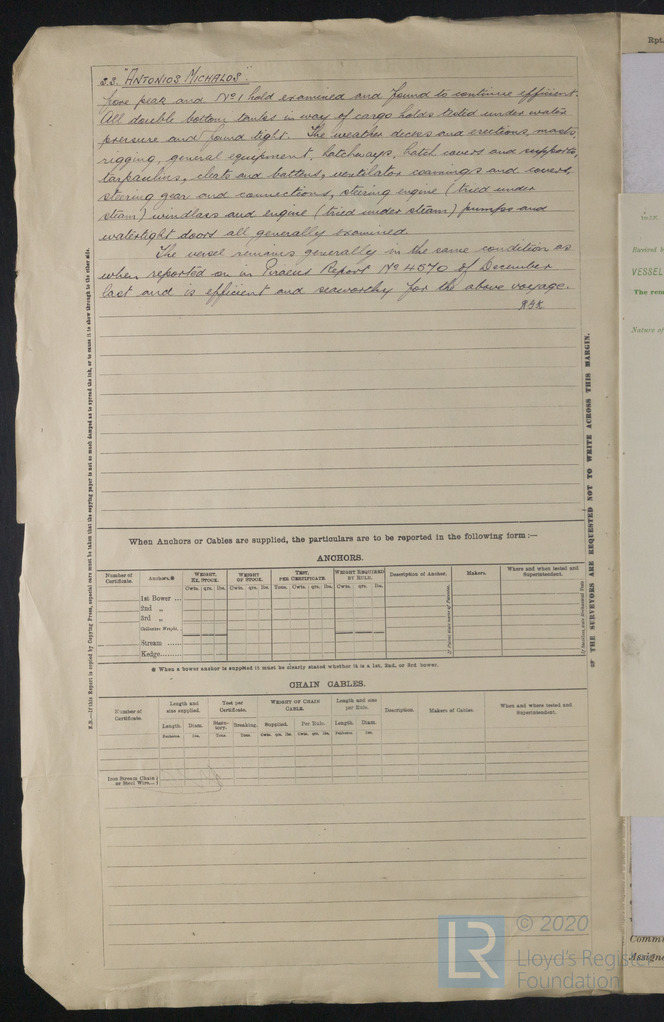 S.S. "ANTONIOS MICHALOS".
fore peak and No 1 hold examined and found to continue efficient.
All double bottom tanks in way of cargo holds tested under water
pressure and found tight. The weather decks and erections, masts,
rigging, general equipment, hatchways, hatch covers and supports,
tarpaulins, cleats and battens, ventilator coamings and covers,
steering gear and connections, steering engine (tried under
steam) windlass and engine (tried under steam) pumps and
watertight doors all generally examined.
The vessel remains generally in the same condition as
when reported on in Piraeus Report No 4570 of December
last and is efficient and seaworthy for the above voyage.
N.B.—If this Report is copied by Copying Press, especial care must be taken that the copying paper is not so much damped as to spread the ink, or to cause it to show through to the other side.
THE SURVEYORS ARE REQUESTED NOT TO WRITE ACROSS THIS MARGIN.
When Anchors or Cables are supplied, the particulars are to be reported in the following form:—
ANCHORS.
Number of Certificate. Anchors.* WEIGHT, EX. STOCK. WEIGHT OF STOCK. TEST, PER CERTIFICATE. WEIGHT REQUIRED BY RULE. Description of Anchor. Makers. Where and when tested and Superintendent.
Cwts. qrs. lbs. Cwts. qrs. lbs. Tons. Cwts. qrs. lbs. Cwts. qrs. lbs.
1st Bower ...
2nd „
3rd „
Collective Weight.
Stream ......
Kedge.........
* When a bower anchor is supplied it must be clearly stated whether it is a 1st, 2nd, or 3rd bower.
CHAIN CABLES.
Number of Certificate. Length and size supplied. Test per Certificate. WEIGHT OF CHAIN CABLE. Length and size per Rule. Description. Makers of Cables. When and where tested and Superintendent.
Length. Diam. Statutory. Breaking. Supplied. Per Rule. Length. Diam.
Fathoms. Ins. Tons. Tons. Cwts. qrs. lbs. Cwts. qrs. lbs. Fathoms. Ins.
Iron Stream Chain
or Steel Wire...
Rpt.
Received
VESSEL
Nature of
Comm
Assign
LR
© 2020
Lloyd's Register
Foundation